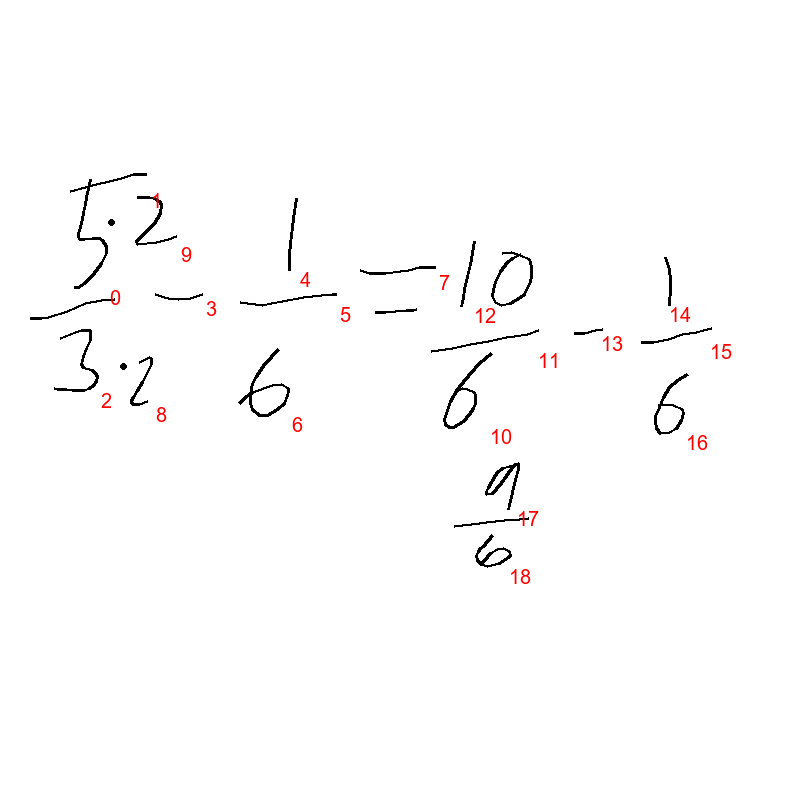 5·2/3·2 - 1/6 = 10/6 - 1/6
9/6
0 1 2 3 4 5 6 7 8 9 10 11 12 13 14 15 16 17 18